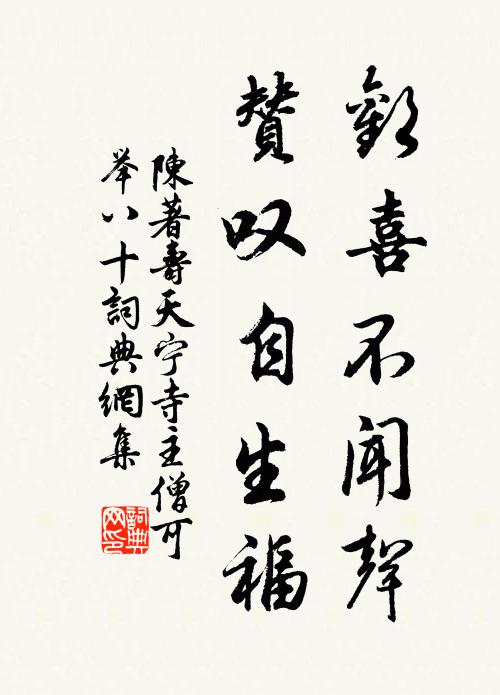 歡喜不聞聲
賛叹自生福
陳著壽天宁寺主僧可
举八十詞典網集
詞典
网印